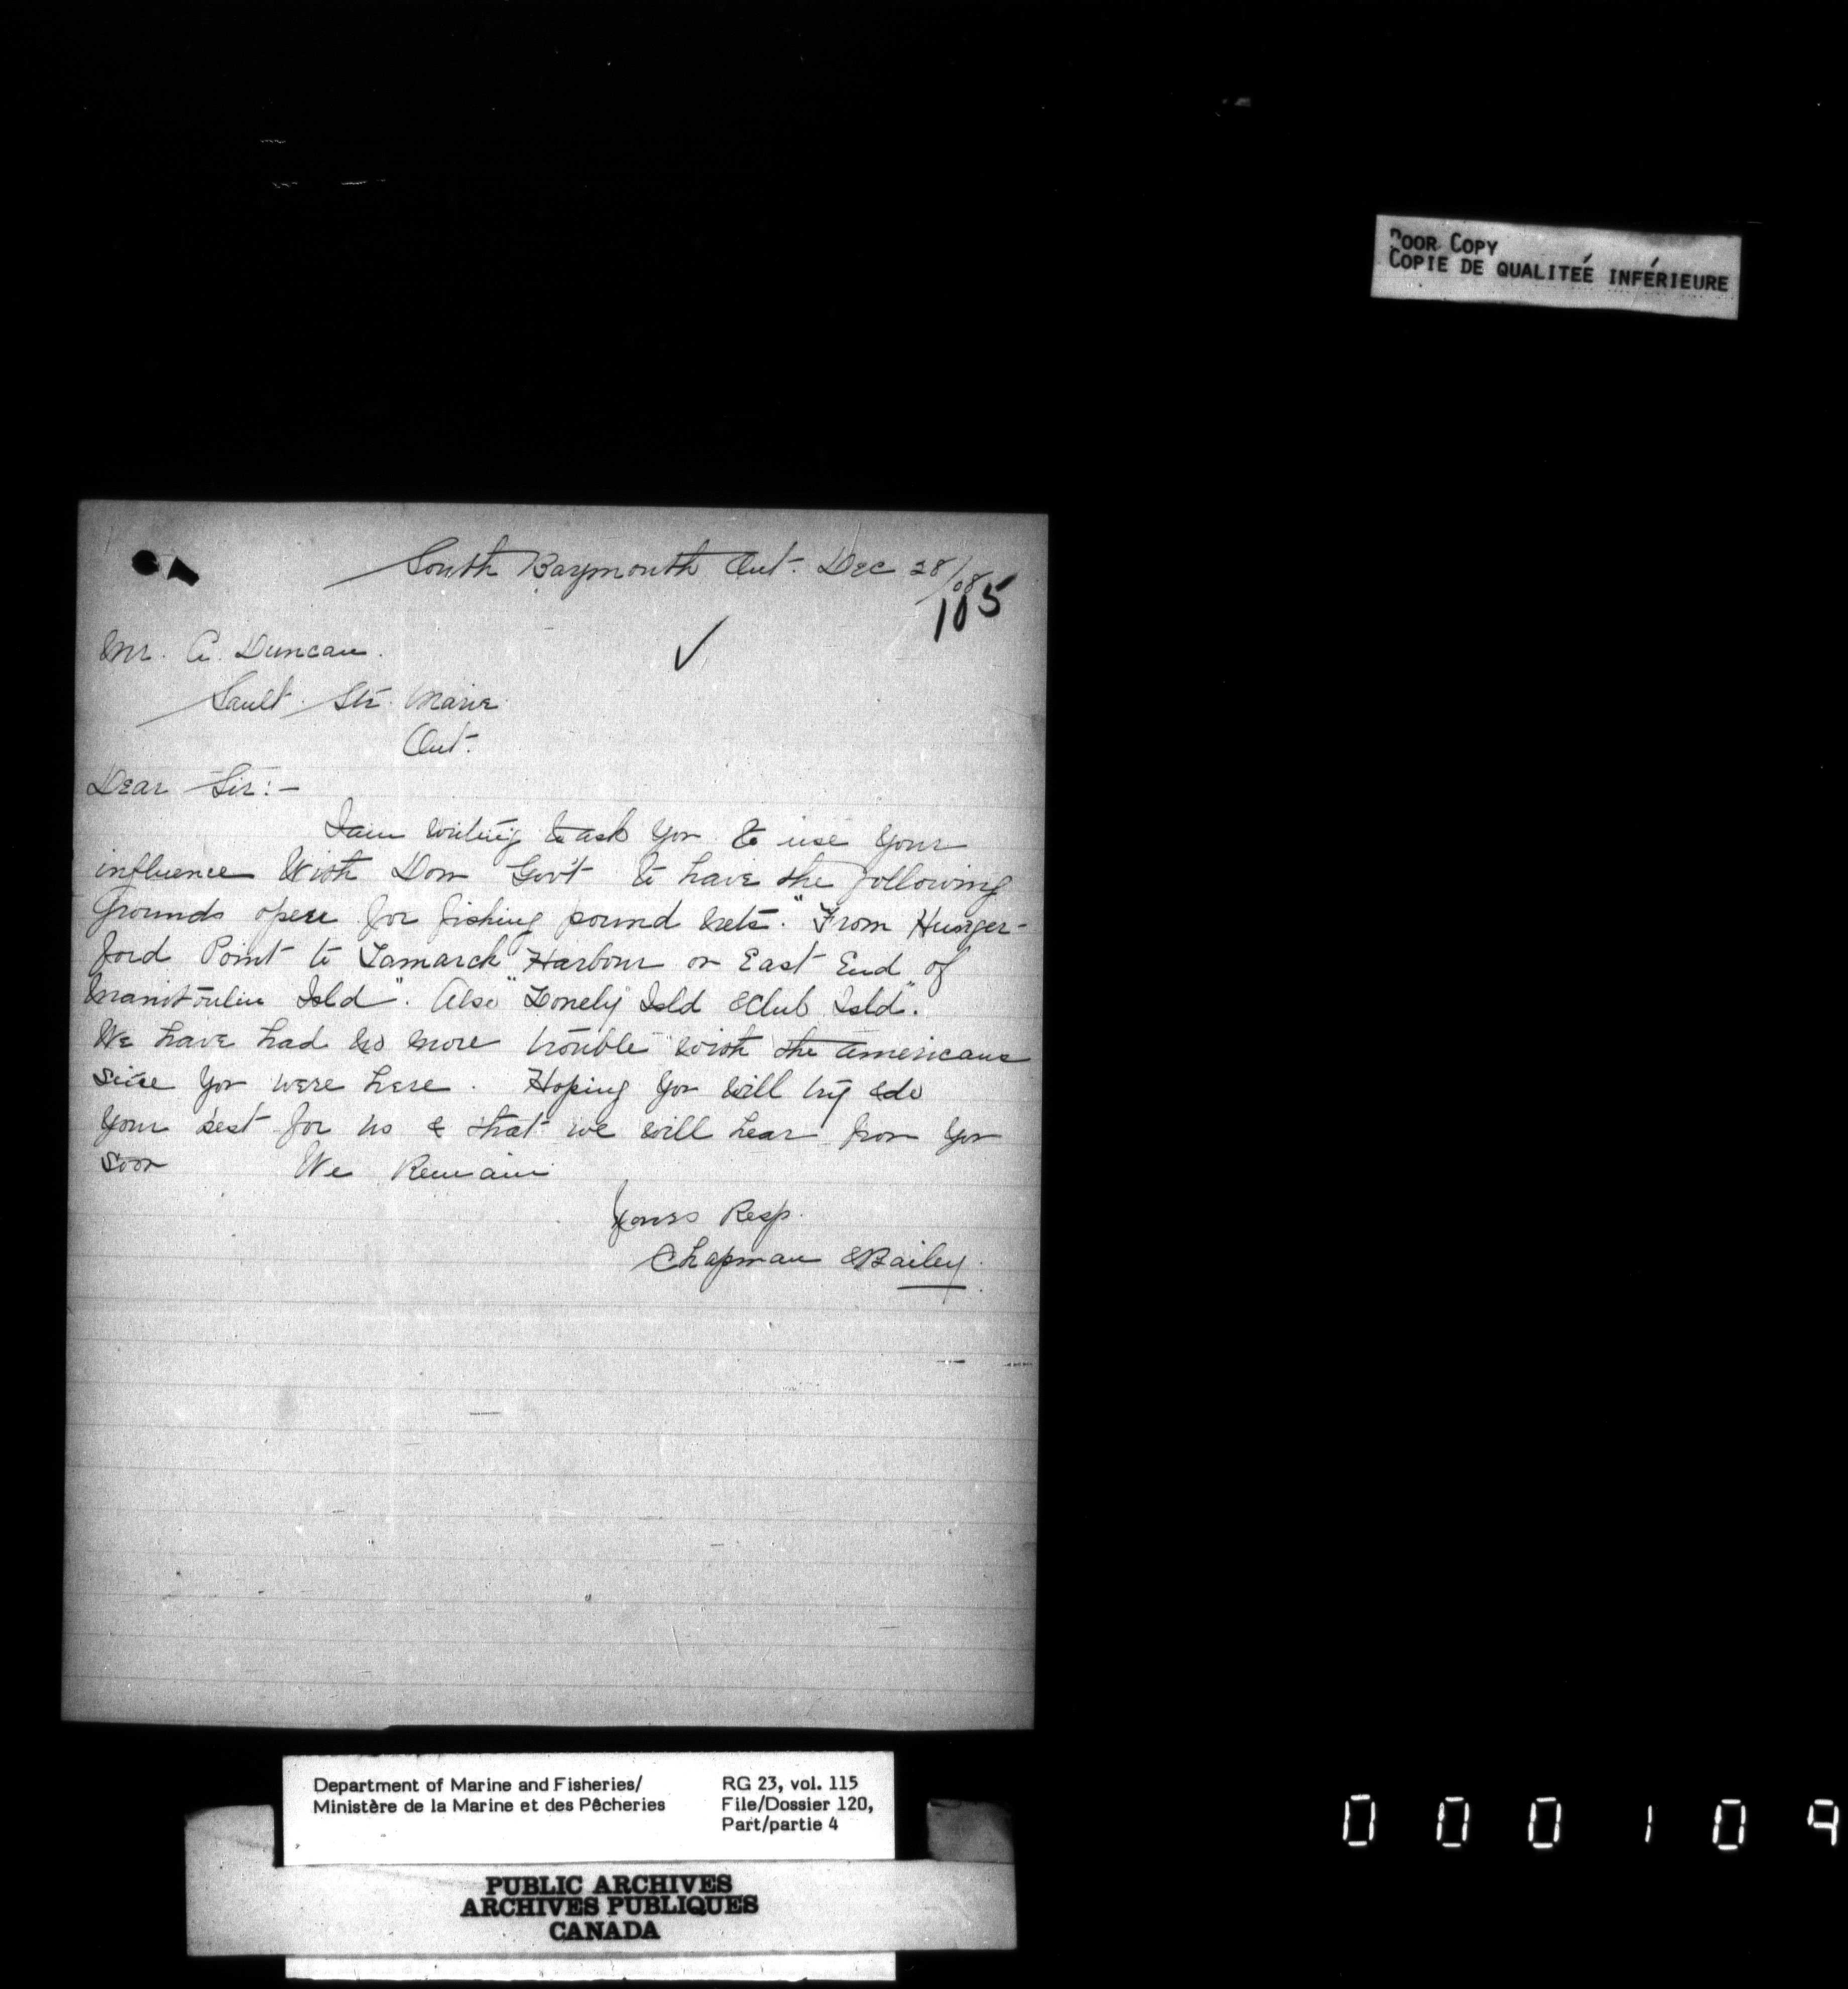 POOR COPY
COPIE DE QUALITEÉ INFÉRIEURE
South Baymouth Ont. Dec 28/08
105
Mr. A. Duncan.
Sault. Ste. Marie
Ont.
Dear Sir:-
I am writing to ask you to use your
influence With Dom Gov't to have the following
grounds open for fishing pound nets. "From Hunger-
ford Point to Tamarck Harbour on East End of
Manitoulin Isld". Also "Lonely Isld & Club Isld".
We have had no more trouble with the Americans
since you were here. Hoping you will try & do
your best for us & that we will hear from you
soon We Remain
Yours Resp.
Chapman & Bailey.
Department of Marine and Fisheries/
Ministère de la Marine et des Pêcheries
RG 23, vol. 115
File/Dossier 120,
Part/partie 4
PUBLIC ARCHIVES
ARCHIVES PUBLIQUES
CANADA
000109